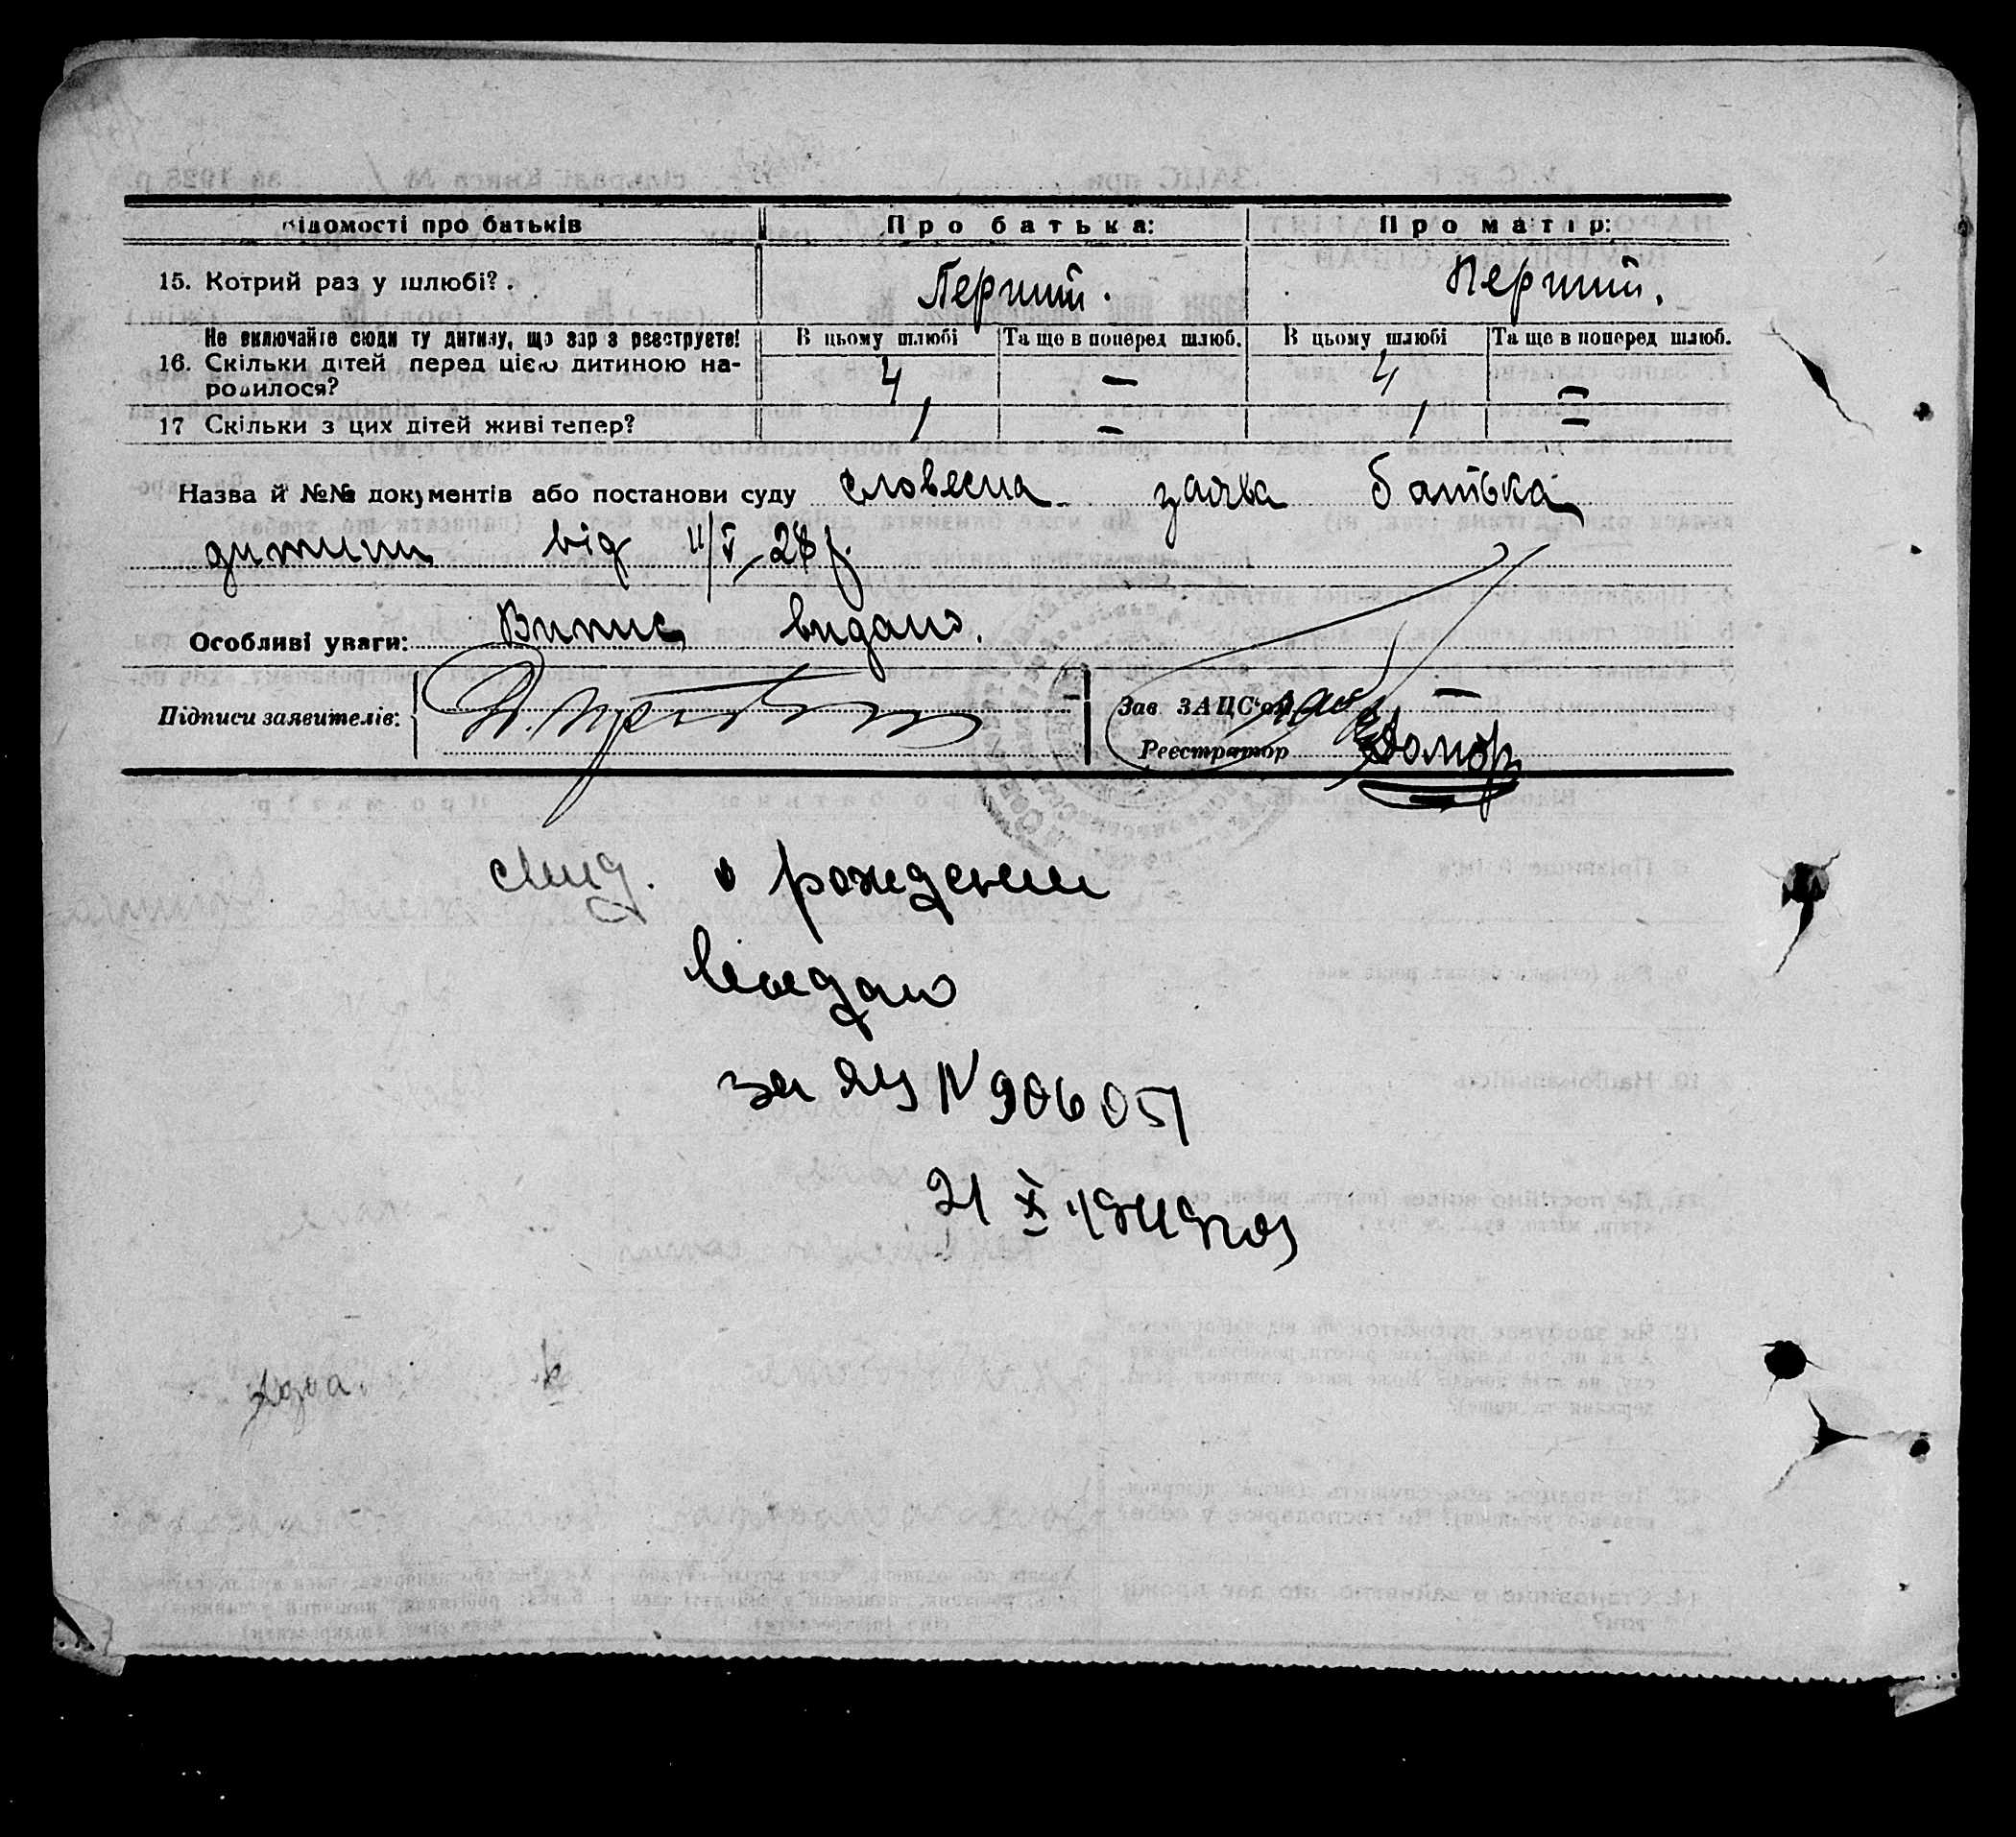 Відомості про батьків Про батька: Про матір:
15. Котрий раз у шлюбі? . Перший. Перший.
Не включайте сюди ту дитину, що зараз реєструєте! В цьому шлюбі Та ще в поперед шлюб. В цьому шлюбі Та ще в поперед шлюб.
16. Скільки дітей перед цією дитиною на- 4 — 4 —
родилося?
17 Скільки з цих дітей живі тепер? 1 — 1 —
Назва й №№ документів або постанови суду словесна заява батька
дитини від 11/V-28 р.
Особливі уваги: Випис видано.
Підписи заявителів:
Зав. ЗАЦС'ом
Реєстратор
свид. о рождении
выдано
за ЯЦ N 906051
21 X 1949 год